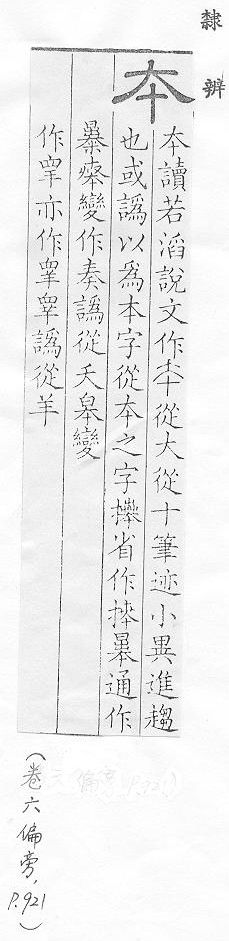 隸辨
夲
夲讀若滔說文作夲從大從十筆迹小異進趨
也或譌以爲本字從夲之字省作㬥通作
變作奏譌從夭皋變
作亦作譌從羊
（卷六偏旁，P.921）